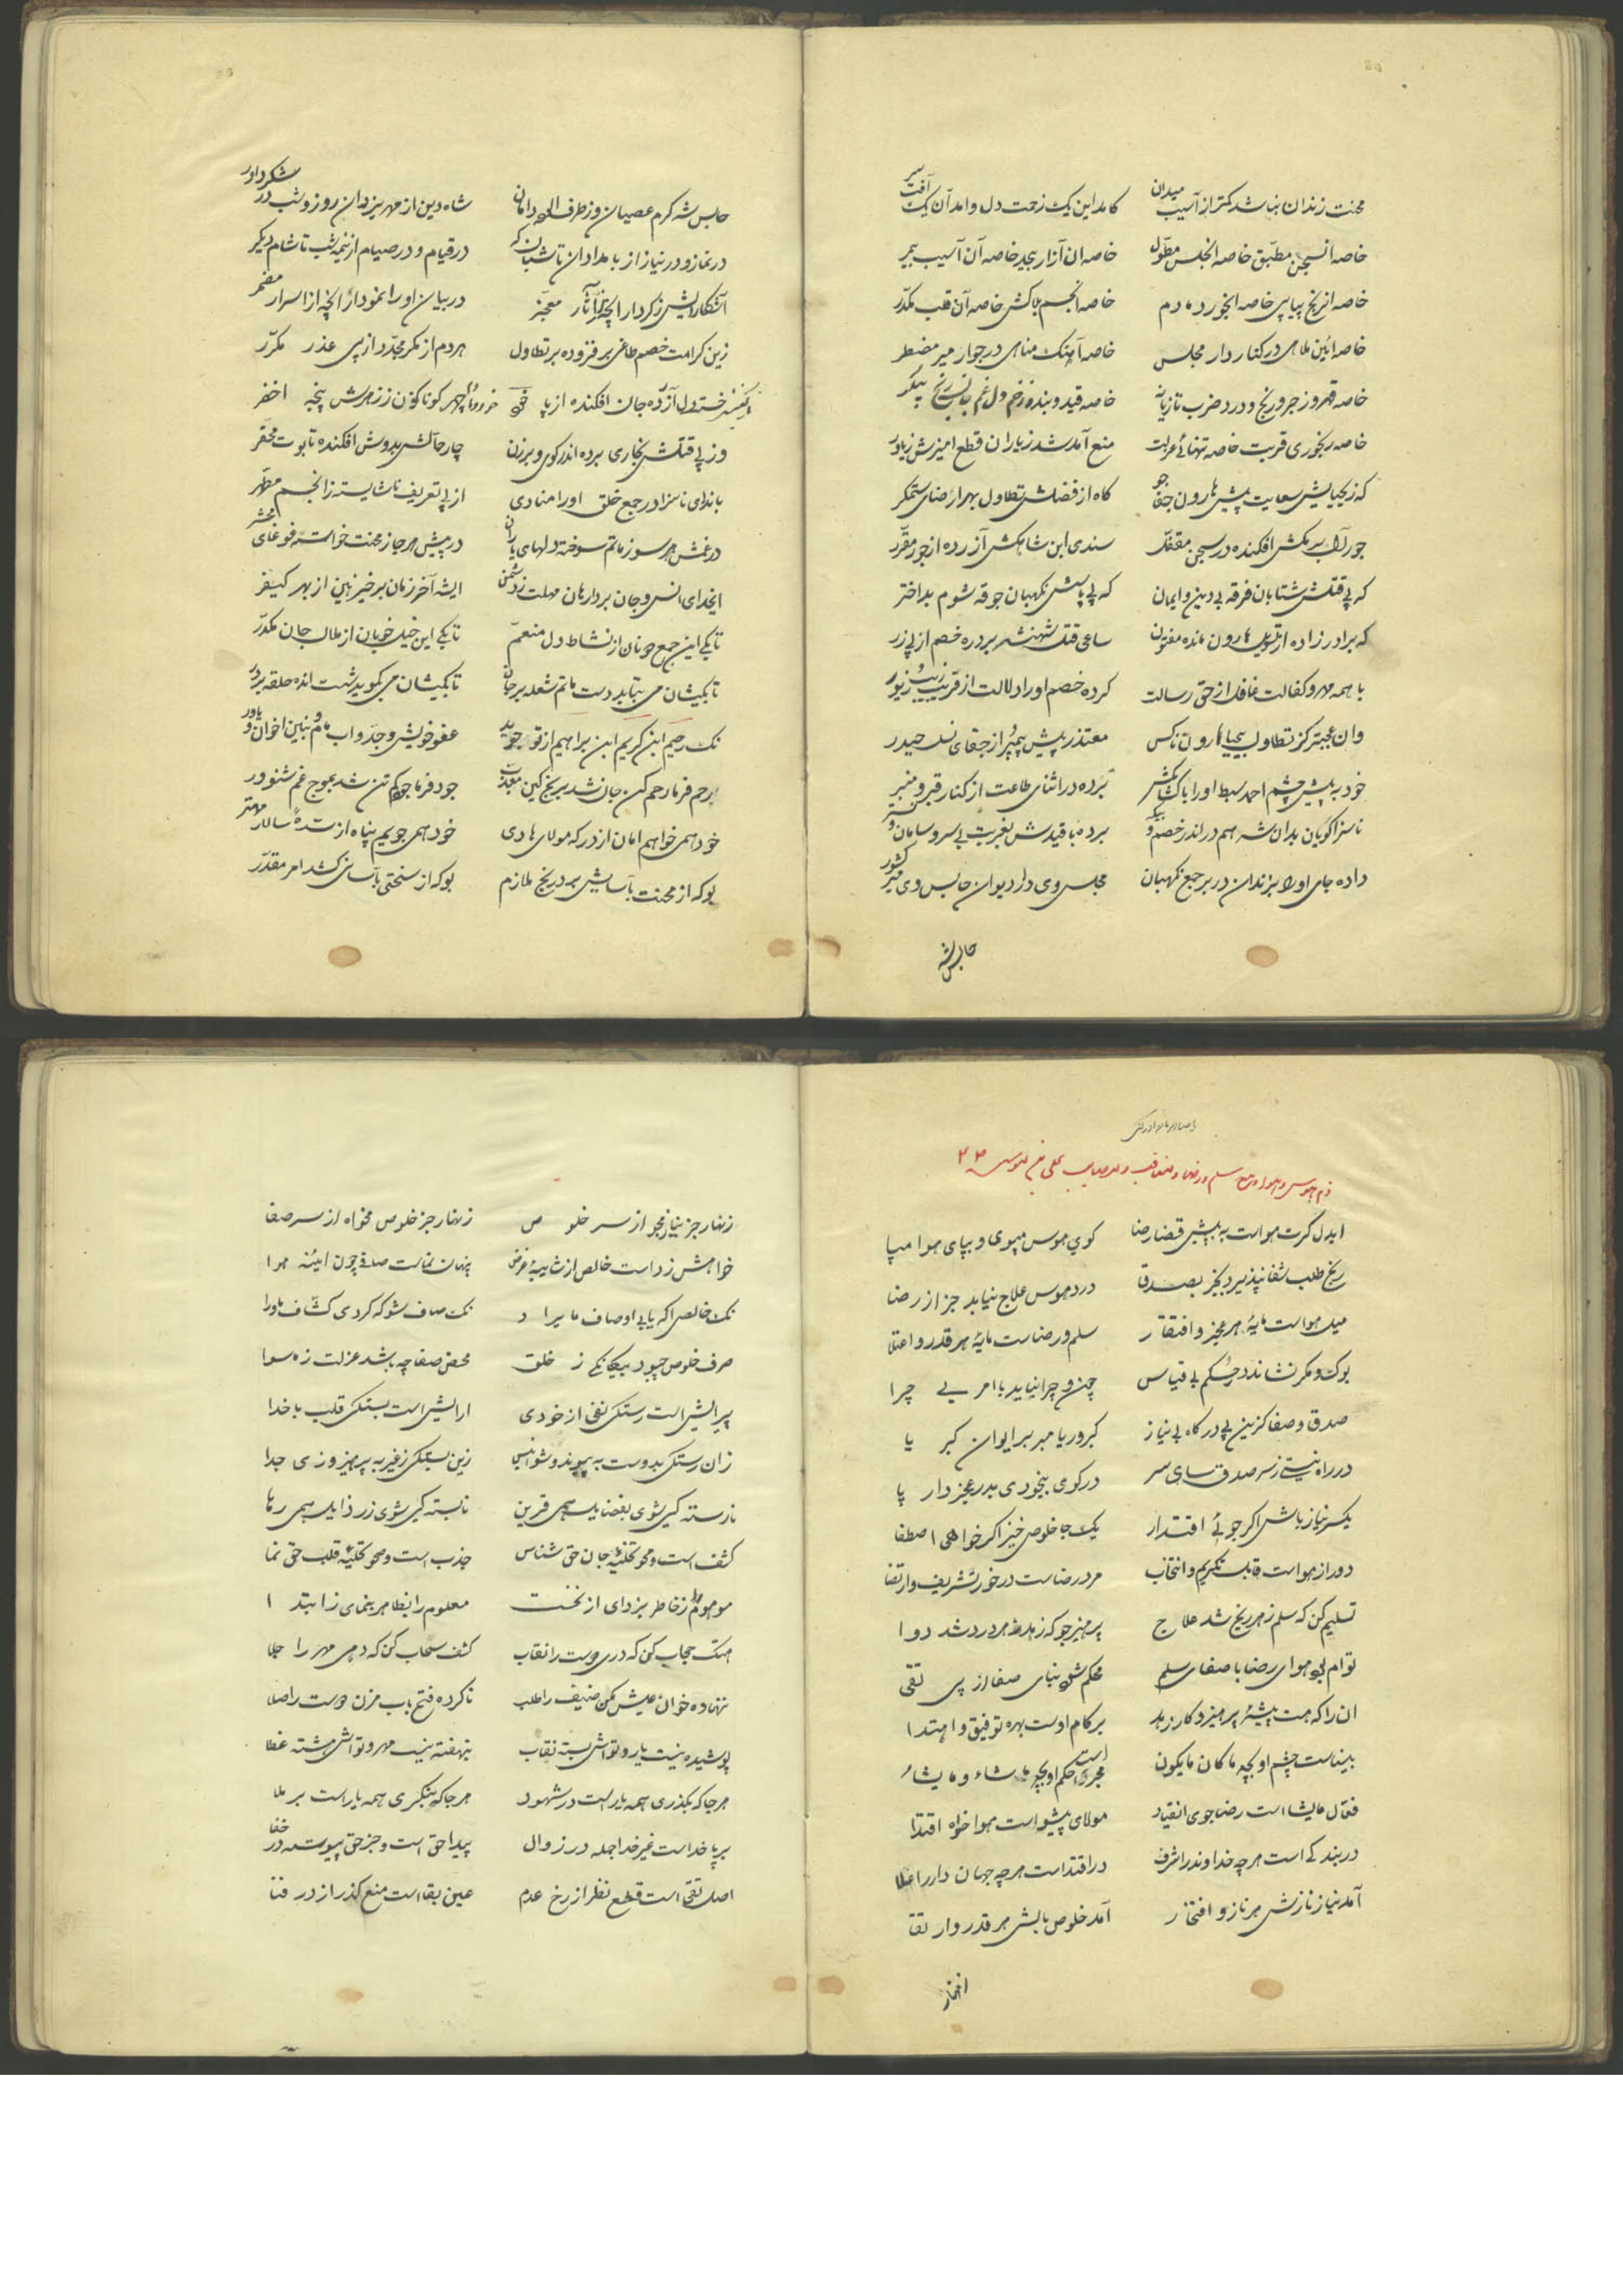 محنت زندان نباشد کمتر از آسیب میدان کامد این یک زحمت دل وامد آن یک آفت سر
خاصه انسجن مطبق خاصه انحبس مطول خاصه ان آزار بیحد خاصه آن آسیب بیمر
خاصه انرنج پیاپی خاصه انجور دمادم خاصه انجسم بلاکش خاصه آن قلب مکدر
خاصه ائین ملاهی در کنار دار مجلس خاصه آهنک مناهی در جوار میر مضطر
خاصه قهر و زجر و رنج و درد ضرب تازیانه خاصه قید و بند و زخم دل غم جان رنج پیکر
خاصه رنجوری قربت خاصه تنهائی عزلت منع آمد شد ز یاران قطع امیزش ز یاور
که ز یحیایش سعایت پیش هارون جفا جو کاه از فضلش تطاول بهر ارضای ستمکر
جور آن بیرمکش افکنده در سجن مقفل سندی ابن شاهکش آزرده از جور مقرر
که پی قتلش شتابان فرقه بی دین و ایمان که پی پاسش نکهبان جوقه شوم بداختر
که برادرزاده از تسویل هارون مانده مفتون ساعی قتل شهنشه بر دره خصم از پی زر
با همه مهر و کفالت غافل از حق رسالت کرده خصم او را دلالت از فریب زیب و زیور
وان عجبتر کز تطاول بیحیا هارون ناکس معتذر پیش پیمبر از جفای نسل حیدر
خود به پیش چشم احمد سبط او را با کشاکش برده در اثنای طاعت از کنار قبر و منبر
ناسزا کویان بدان شه هم در اندر خصم برده با قیدش بغربت بی سر و سامان
داده جای او را بزندان در بر جمع نکهبان مجلس وی دار دیوان حابس وی میر کشور
حابس شه
حابس شه کرم عصیان وز طرف اللهو دامان شاه دین از مهر یزدان روز و شب در شکر داور
در نماز و در نیاز از بامدادان تا شبانکه در قیام و در صیام از نیمه شب تا شام دیکر
آشکارایش ز کردار انچه ز آثار معجز در بیان او را نمودار انچه از اسرار مضمر
زین کرامت خصم طاغی بر فزوده بر تطاول هر دم از مکر مجدد از پی عذر مکرر
خسته دل آزرده جان افکنده از پا چهر کوناکون ز زهرش پنجه اخضر
وز پی قتلش بخاری برده اندر کوی و برزن چار حمالش بدوش افکنده تابوت محقر
باندای ناسزا در جمع خلق او را منادی از پی تعریف ناشایسته زانجسم مطهر
در غمش هر سو ز ماتم سوخته دلهای یاران در پیش هر جا ز محنت خواسته غوغای محشر
ایخدای انس و جان بردار هان مهلت ز دشمن ایشه آخر زمان برخیز هین از بهر کیفر
تا بکی این جمع دونان از نشاط دل منعم تا بکی این خیل خوبان از ملال جان مکدر
تا بکیشان می بتابد دست ماتم شعله بر جان تا بکیشان می بکوبد پشت انده حلقه بر در
نک رحیم ابن کریم ابن براهیم از تو جوید عفو خویش و جد و اب مام و بنین اخوان و یاور
رحم فرما رحم کن جان شد برنج کین معذب جود فرما جود کم تن شد بموج غم شناور
خود همی خواهم امان از درکه مولای هادی خود همی جویم پناه از سده سالار مهتر
بوکه از محنت بآسایش برد رنج ملازم بوکه از سختی بآسانی کشد امر مقدر
ایدل کرت هواست به پیش قضا رضا کوی هوس مپوی و بپای هوا مپا
رنج طلب شفا نپذیرد بجز بصدق درد هوس علاج نیابد جز از رضا
میل هواست مایه هر عجز و افتقار سلم و رضاست مایه هر قدر و اعتلا
بوک و مکر نشاند در حکم بی قیاس چون و چرا نیاید با امر بی چرا
صدق و صفا کزین پی درکاه بی نیاز کبر و ریا مبر بر ایوان کبریا
در راه نیستی ز سر صدق سای سر در کوی بیخودی بدر عجز دار پا
یکسر نیاز باش اکر جوئی اقتدار یکجا خلوص خیز اکر خواهی اصطفا
دور از هواست قابل تکریم و انتخاب مرد رضاست در خور تشریف و ارتضا
تسلیم کن که سلم ز هر رنج شد علاج پرهیز جو که زهد هر درد شد دوا
توام بجو هوای رضا با صفای سلم محکم شو بنای صفا از پی تقی
ان را که هست پیشه پرهیز و کار زهد بر کام اوست بهره توفیق و اهتدا
بیناست چشم او بچه ما کان ما یکون مجری است حکم او بچه ما شاء و ما یشاء
فعال مایشا است رضا جوی انقیاد مولای پیشواست هوا خواه اقتدا
در بندکی است هر چه خداوند را شرف در اقتداست هر چه جهان دار را علا
آمد نیاز نازش هر ناز و افتخار آمد خلوص بالش هر قدر وارتقا
زنهار جز نیاز مجو از سر خلوص زنهار جز خلوص مخواه از سر صفا
خواهش ز داست خالص از شایبه غرض پنهان نماست صافی چون اینه هوا
نک خالص اکه یابی اوصاف ما یراد نک صاف شو که کردی کشاف ماورا
صرف خلوص چبود بیکانکی ز خلق محض صفا چه باشد عزلت ز ما سوا
پیرایش است رستکی نفس از خودی ارایش است بستکی قلب با خدا
زان رستکی بدوست به پیوند و شو انیس زین بستکی ز غیر به پرهیز و زی جدا
نارسته کی شوی بفضایل همی قرین نابسته کی شوی ز رذایل همی رها
کشف است و محو تخلیه جان حق شناس جذب است و صحو تحلیه قلب حق نما
موهوم را ز خاطر بزدای از نخست معلوم را بظاهر بنمای زابتدا
هتک حجاب کن که دری دوست را نقاب کشف سحاب کن که دهی مهر را جلا
ننهاده خوان عیش مکن ضیف را طلب ناکرده فتح باب مزن دوست را صلا
پوشیده نیست یار و تواش بسته نقاب بنهفته نیست مهر و تواش هشته غطا
هر جا که بکذری همه یار است در شهود هر جا که بنکری همه یار است بر ملا
بر پا خداست غیر خدا جمله در زوال پیدا حق است و جز حق پیوسته در خفا
اصل تقی است قطع نظر از رخ عدم عین بقا است منع کذر از در فنا